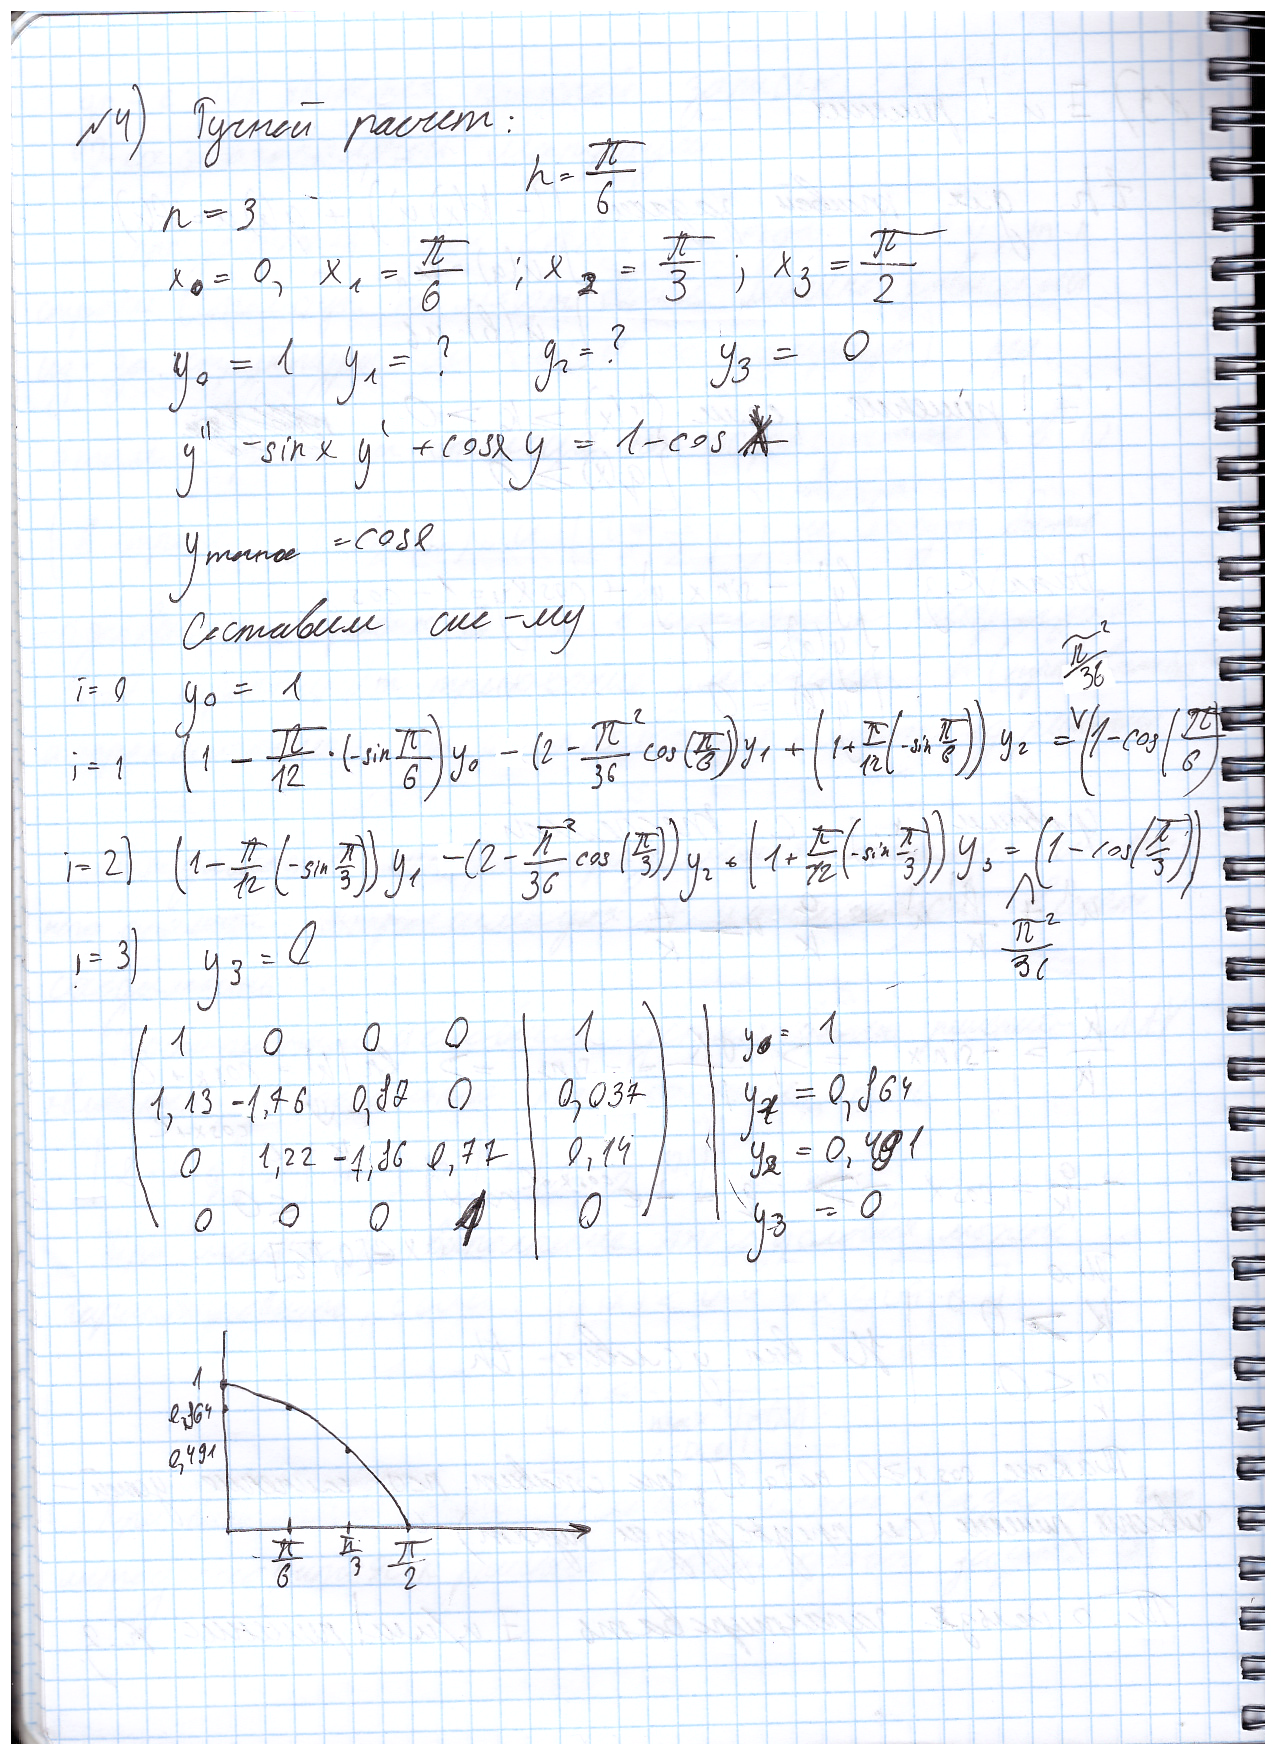 №4) Ручной расчет:
h = π/6
n = 3
x₀ = 0, x₁ = π/6 ; x₂ = π/3 ; x₃ = π/2
y₀ = 1 y₁ = ? y₂ = ? y₃ = 0
y'' - sin x y' + cos x y = 1 - cos x
y точное = cos x
Составим сис-му
π²/36
i = 0 y₀ = 1
i = 1 (1 - π/12 · (-sin π/6) y₀ - (2 - π²/36 cos(π/6)) y₁ + (1 + π/12 (-sin π/6)) y₂ = (1 - cos(π/6)
i = 2) (1 - π/12 (-sin π/3)) y₁ - (2 - π²/36 cos(π/3)) y₂ + (1 + π/12 (-sin π/3)) y₃ = (1 - cos(π/3))
π²/36
i = 3) y₃ = 0
1 0 0 0 | 1 y₀ = 1
1,13 -1,76 0,87 0 | 0,037 y₁ = 0,864
0 1,22 -1,86 0,77 | 0,14 y₂ = 0,491
0 0 0 1 | 0 y₃ = 0
1
0,864
0,491
π/6 π/3 π/2